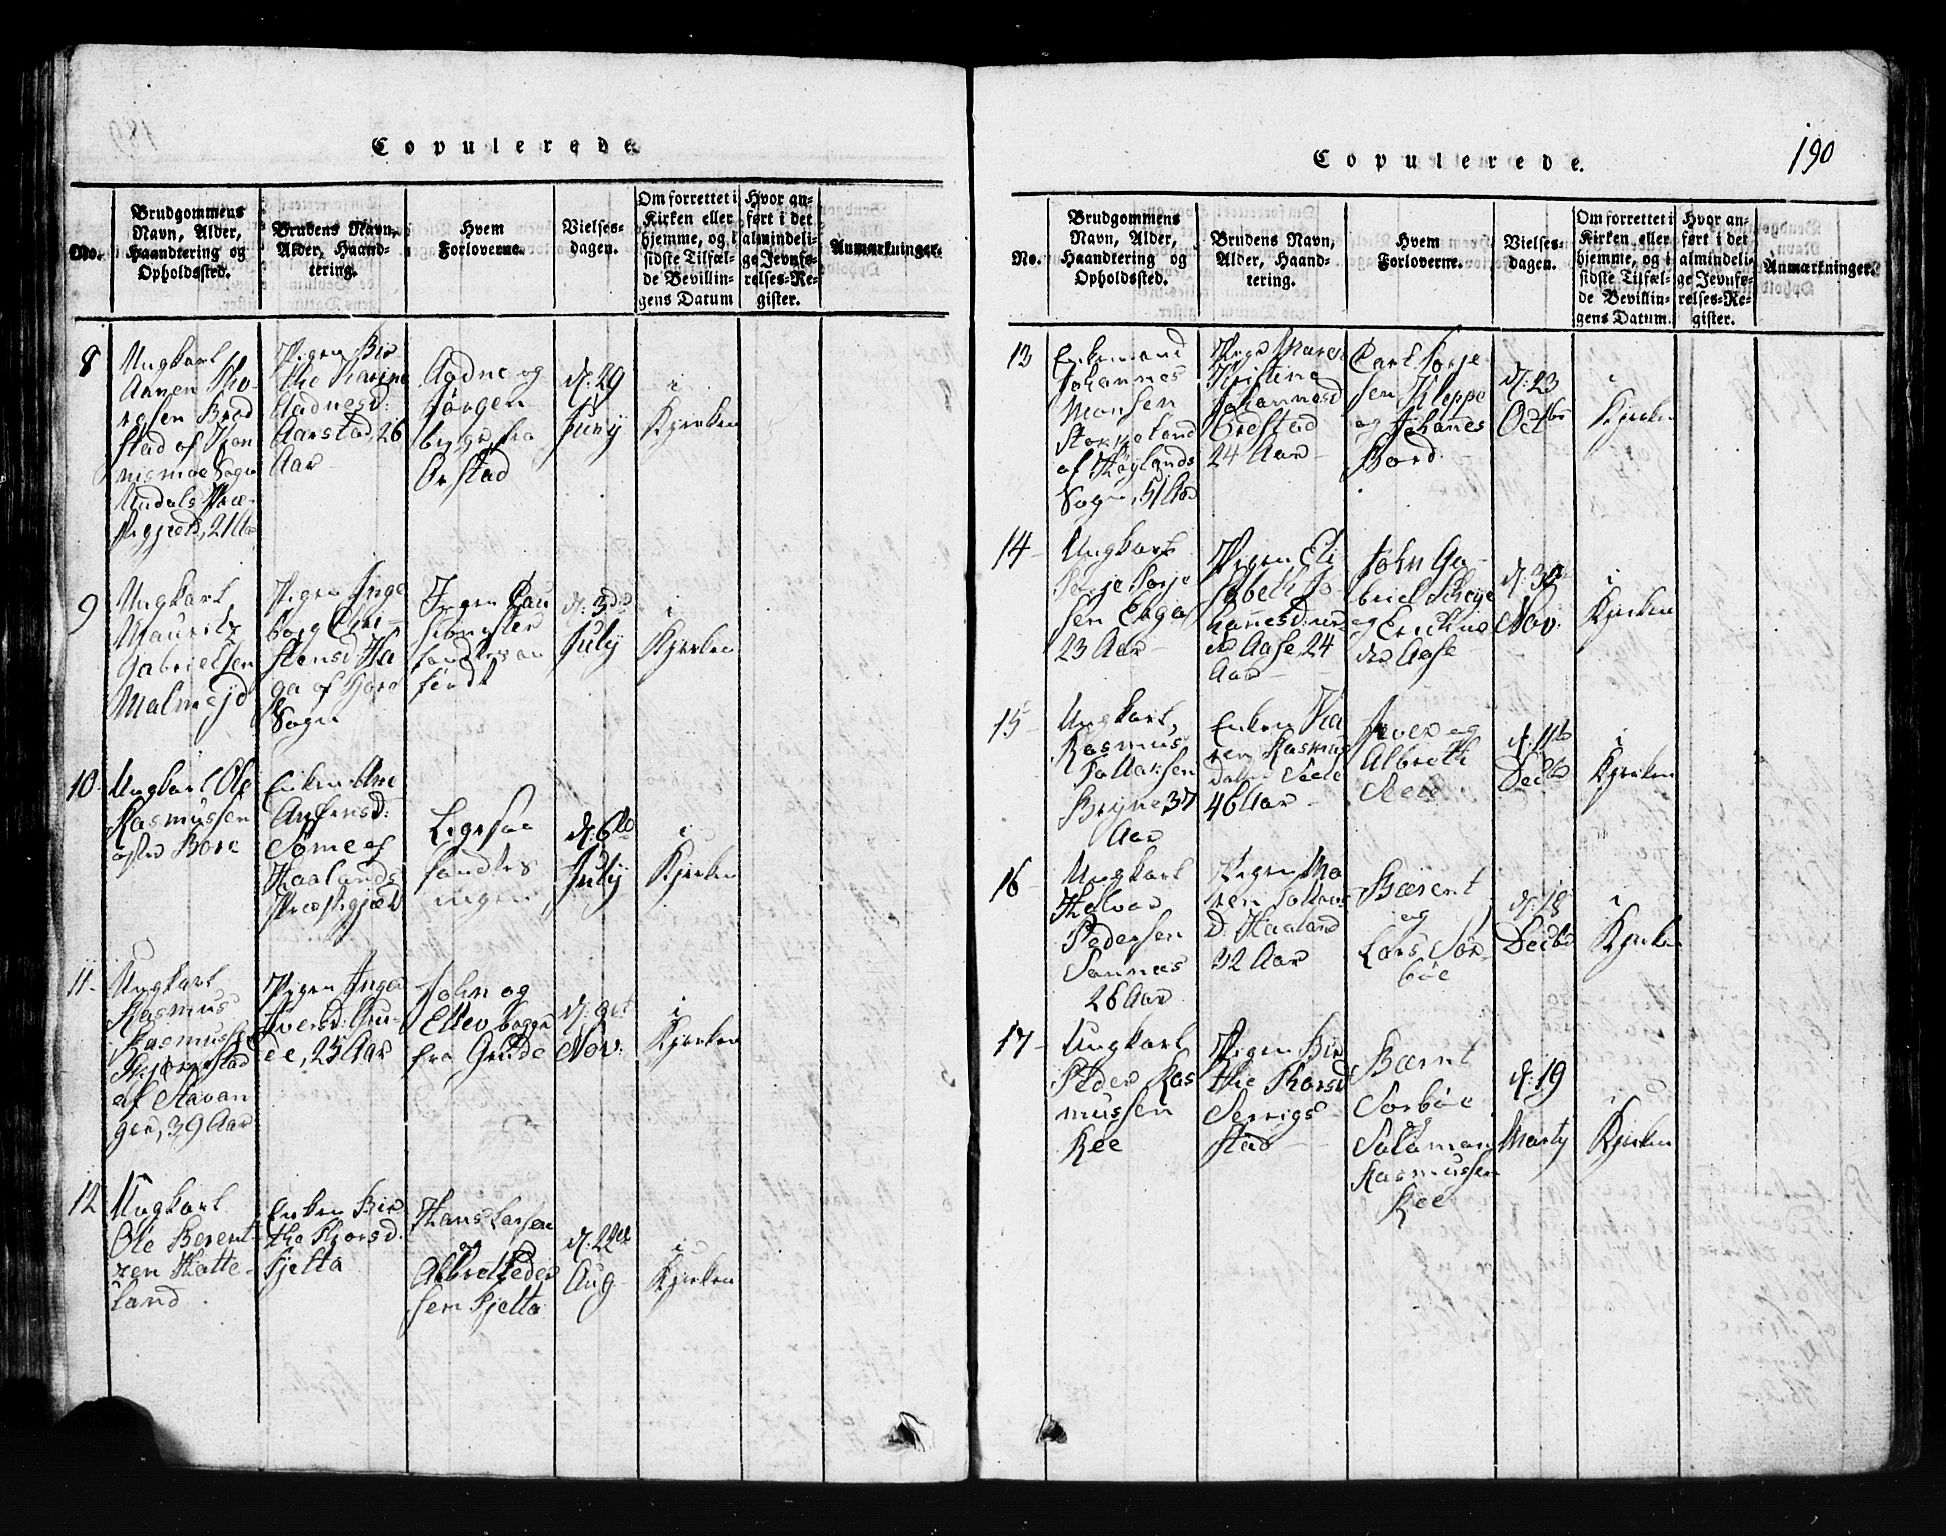 Copulerede.
No.
Brudgommens
Navn, Alder,
Haandtering og
Opholdssted.
Brudens Navn,
Alder, Haand-
tering.
Hvem
Forloverne.
Vielses-
dagen.
Om forrettet i
Kirken eller
hjemme, og i
sidste Tilfæl-
de Bevillin-
gens Datum
Hvor an-
ført i det
almindeli-
ge Jevnfø-
relses-Re-
gister.
Anmærkninger.
8
Ungkarl
Aanen Tho-
rsen Bred
stad af
Sogn
Undals Præ-
stegjeld, 21 Aar
Pigen Bir
the Karine
Aadnesd:
Aarstad, 26
Aar
Aadne og
Jørgen
begge fra
Orstad
d: 29
Juny
i
Kjerken
9
Ungkarl
Mauritz
Gabrielsen
Malmejd
Pigen Inge
borg Chri-
stensd Ha
ga af
Sogn
Ingen Cau
tionister
d: 3die
July
i
Kjerken
10
Ungkarl Ole
Rasmussen
Bore
Enken Ane
Sømme af
Haalands
Præstegjæld
Ligesaa
ingen
d: 6te
July
i
Kjerken
11.
Ungkarl
Rasmus
Rasmussen
af Stavan
ger, 39 Aar
Pigen Inger
Iversd: Gru-
de, 25 Aar
John og
Ellev begge
fra Grude
Nov:
i
Kjerken
12
Ungkarl
Ole Berent-
zen Hatte-
land
Enken Bir
the Thorsd.
Tjelta
Hans Larsen
og
Albret Peder
sen Tjelta
d: 22de
Aug
i
Kjerken
Copulerede.
190
No.
Brudgommens
Navn, Alder,
Haandtering og
Opholdssted.
Brudens Navn,
Alder, Haand-
tering.
Hvem
Forloverne.
Vielses-
dagen.
Om forrettet i
Kirken eller
hjemme, og i
sidste Tilfæl-
de Bevillin-
gens Datum.
Hvor an-
ført i det
almindeli-
ge Jevnfø-
relses-Re-
gister.
Anmærkninger.
13
Enkemand
Johannes
Monsen
Stokkeland
af Høylands
Sogn, 51 Aar
Pige Maren
Kristine
Johannesd
Orestad
24 Aar
Carl Torje
sen Kleppe
og Johanes
Bord.
d: 23
Octbr
i
Kjerken
14
Ungkarl
Torje Torje
sen
23 Aar
Pigen Eli
sabeth Jo
hanesd: ner
der Aase, 24
Aar
John Ga-
briel
og
der Aase
Nov:
i
Kjerken
15
Ungkarl,
Rasmus
Tollaksen
Bryne 37
Aar
Enken Ka
ren Rasmus
datter Seele
46 Aar
Iver og
Albreth
d: 11te
Decbr
i
Kjerken
16
Ungkarl
Halvor
Pedersen
Sannæs
28 Aar
Pigen Ma
ren
D: Haaland
32 Aar
Bærent
og
Lars Sør-
bøe
d: 18
Decbr
i
Kjerken
17
Ungkarl
Peder Ras
mussen
Ree
Pigen Bir
the Thorsd
Serrigs-
stad
Bærnt
Sorbøe
og
Salamon
Rasmussen
Ree
d: 19
Marty
i
Kjerken